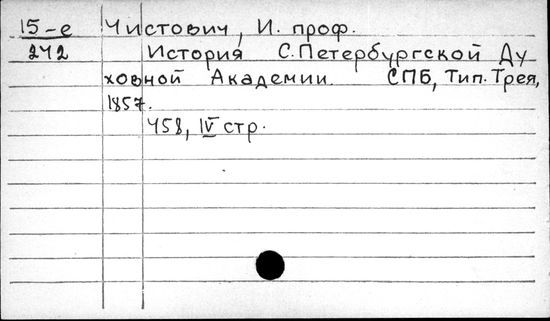 15-е Чистович, И. проф.
242 История С.Петербургской Ду
ховной Академии. СПБ, Тип. Трея,
1857.
458, IV стр.